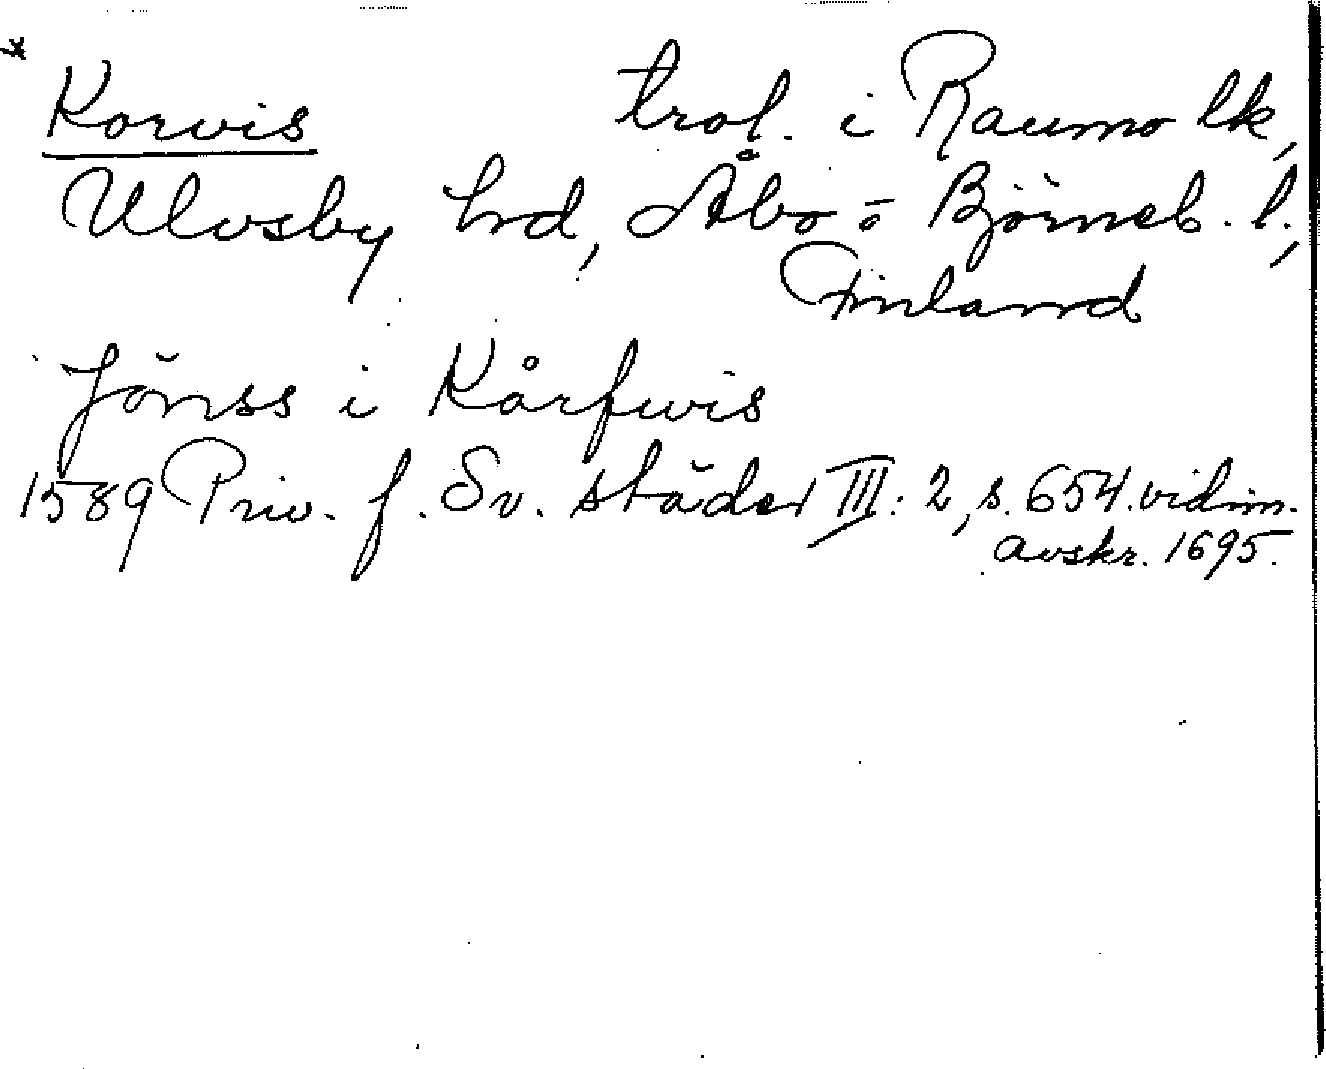 Korvis trol. i Raumo lk,
Ulvsby hd, Åbo- o Björneb. l.,
Finland
Jönss i Kårfwis
1589 Priv. f. Sv. städer III: 2, s. 654. vidim.
avskr. 1695.